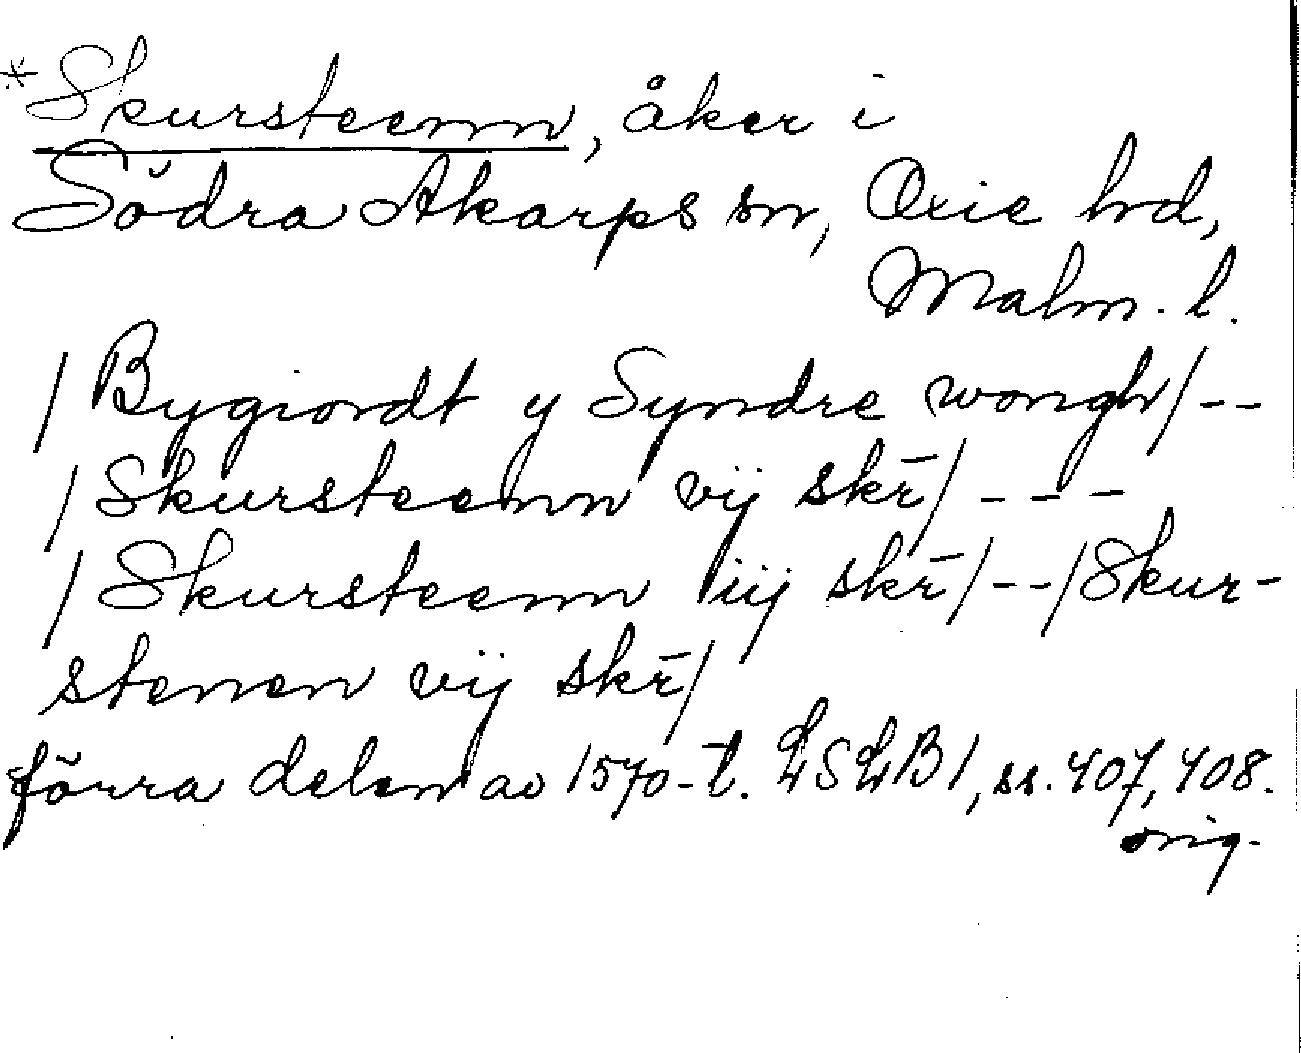 *Skursteenn, åker i
Södra Åkarps sn, Oxie hd,
Malm. l.
/Bygiordt y Syndre wongh/--
/Skursteenn vij skr̄/---
/Skursteenn iiij skr̄/--/Skur-
stenen vij skr̄/
förra delen av 1570-t. LSLB 1, ss. 407, 408.
orig.